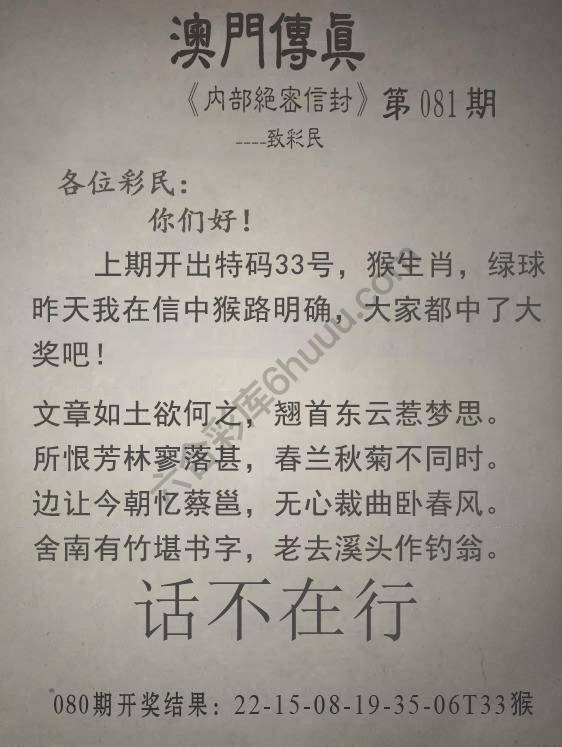 澳門傳眞
《内部絕密信封》第081期
----致彩民
各位彩民：
你们好！
上期开出特码33号，猴生肖，绿球
昨天我在信中猴路明确，大家都中了大
奖吧！
文章如土欲何之，翘首东云惹梦思。
所恨芳林寥落甚，春兰秋菊不同时。
边让今朝忆蔡邕，无心裁曲卧春风。
舍南有竹堪书字，老去溪头作钓翁。
话不在行
080期开奖结果：22-15-08-19-35-06T33猴
六合彩库6huuu.com